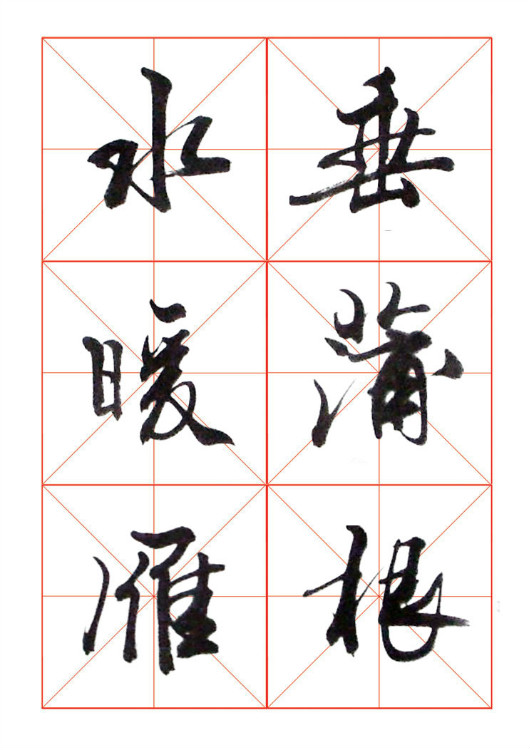 垂蒲根
水暖雁